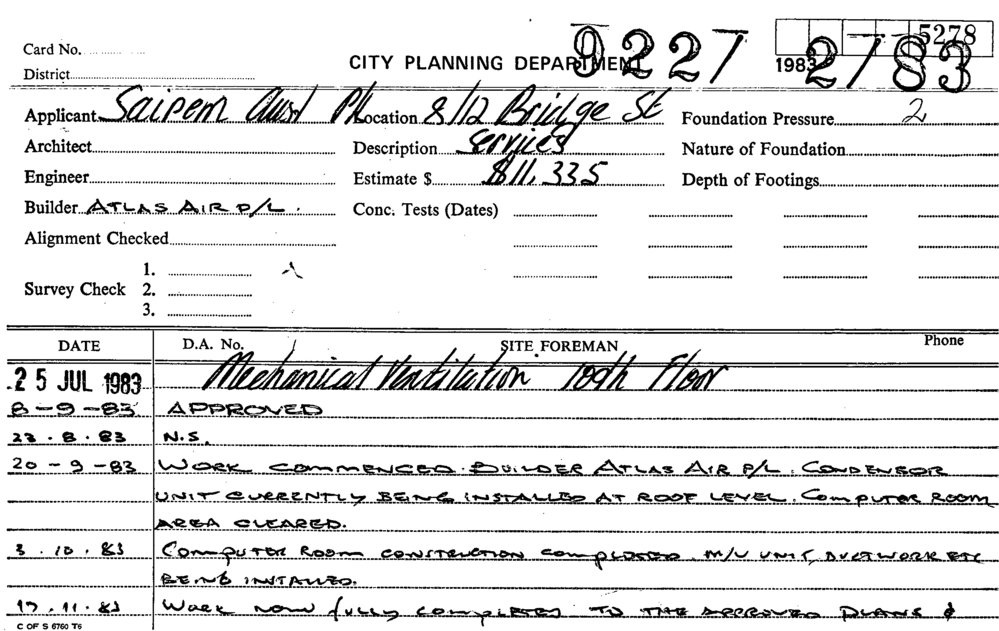 5278
9227/
1983 2/83
Card No.
District
CITY PLANNING DEPARTMENT
Applicant Saipem Aust P/L Location 8/12 Bridge St Foundation Pressure 2
Architect Description Services Nature of Foundation
Engineer Estimate $ $11,335 Depth of Footings
Builder ATLAS AIR P/L. Conc. Tests (Dates)
Alignment Checked
1.
Survey Check 2.
3.
DATE D.A. No. SITE FOREMAN Phone
25 JUL 1983 Mechanical Ventilation 10th Floor
8-9-83 APPROVED
23.8.83 N.S.
20-9-83 WORK COMMENCED. BUILDER ATLAS AIR P/L. CONDENSOR
UNIT CURRENTLY BEING INSTALLED AT ROOF LEVEL. COMPUTOR ROOM
AREA CLEARED.
3.10.83 COMPUTOR ROOM CONSTRUCTION COMPLETED. M/V UNIT, DUCTWORK ETC
BEING INSTALLED.
17.11.83 WORK NOW fully COMPLETED TO THE APPROVED PLANS &
C OF S 6760 T6